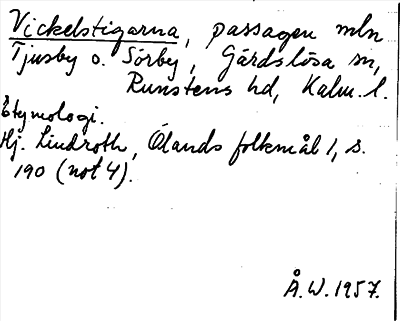 Vickelstigarna, passagen mln
Tjusby o. Sörby, Gärdslösa sn,
Runstens hd, Kalm. l.
Etymologi.
Hj. Lindroth, Ölands folkmål 1, s.
190 (not 4).
Å.W. 1957.